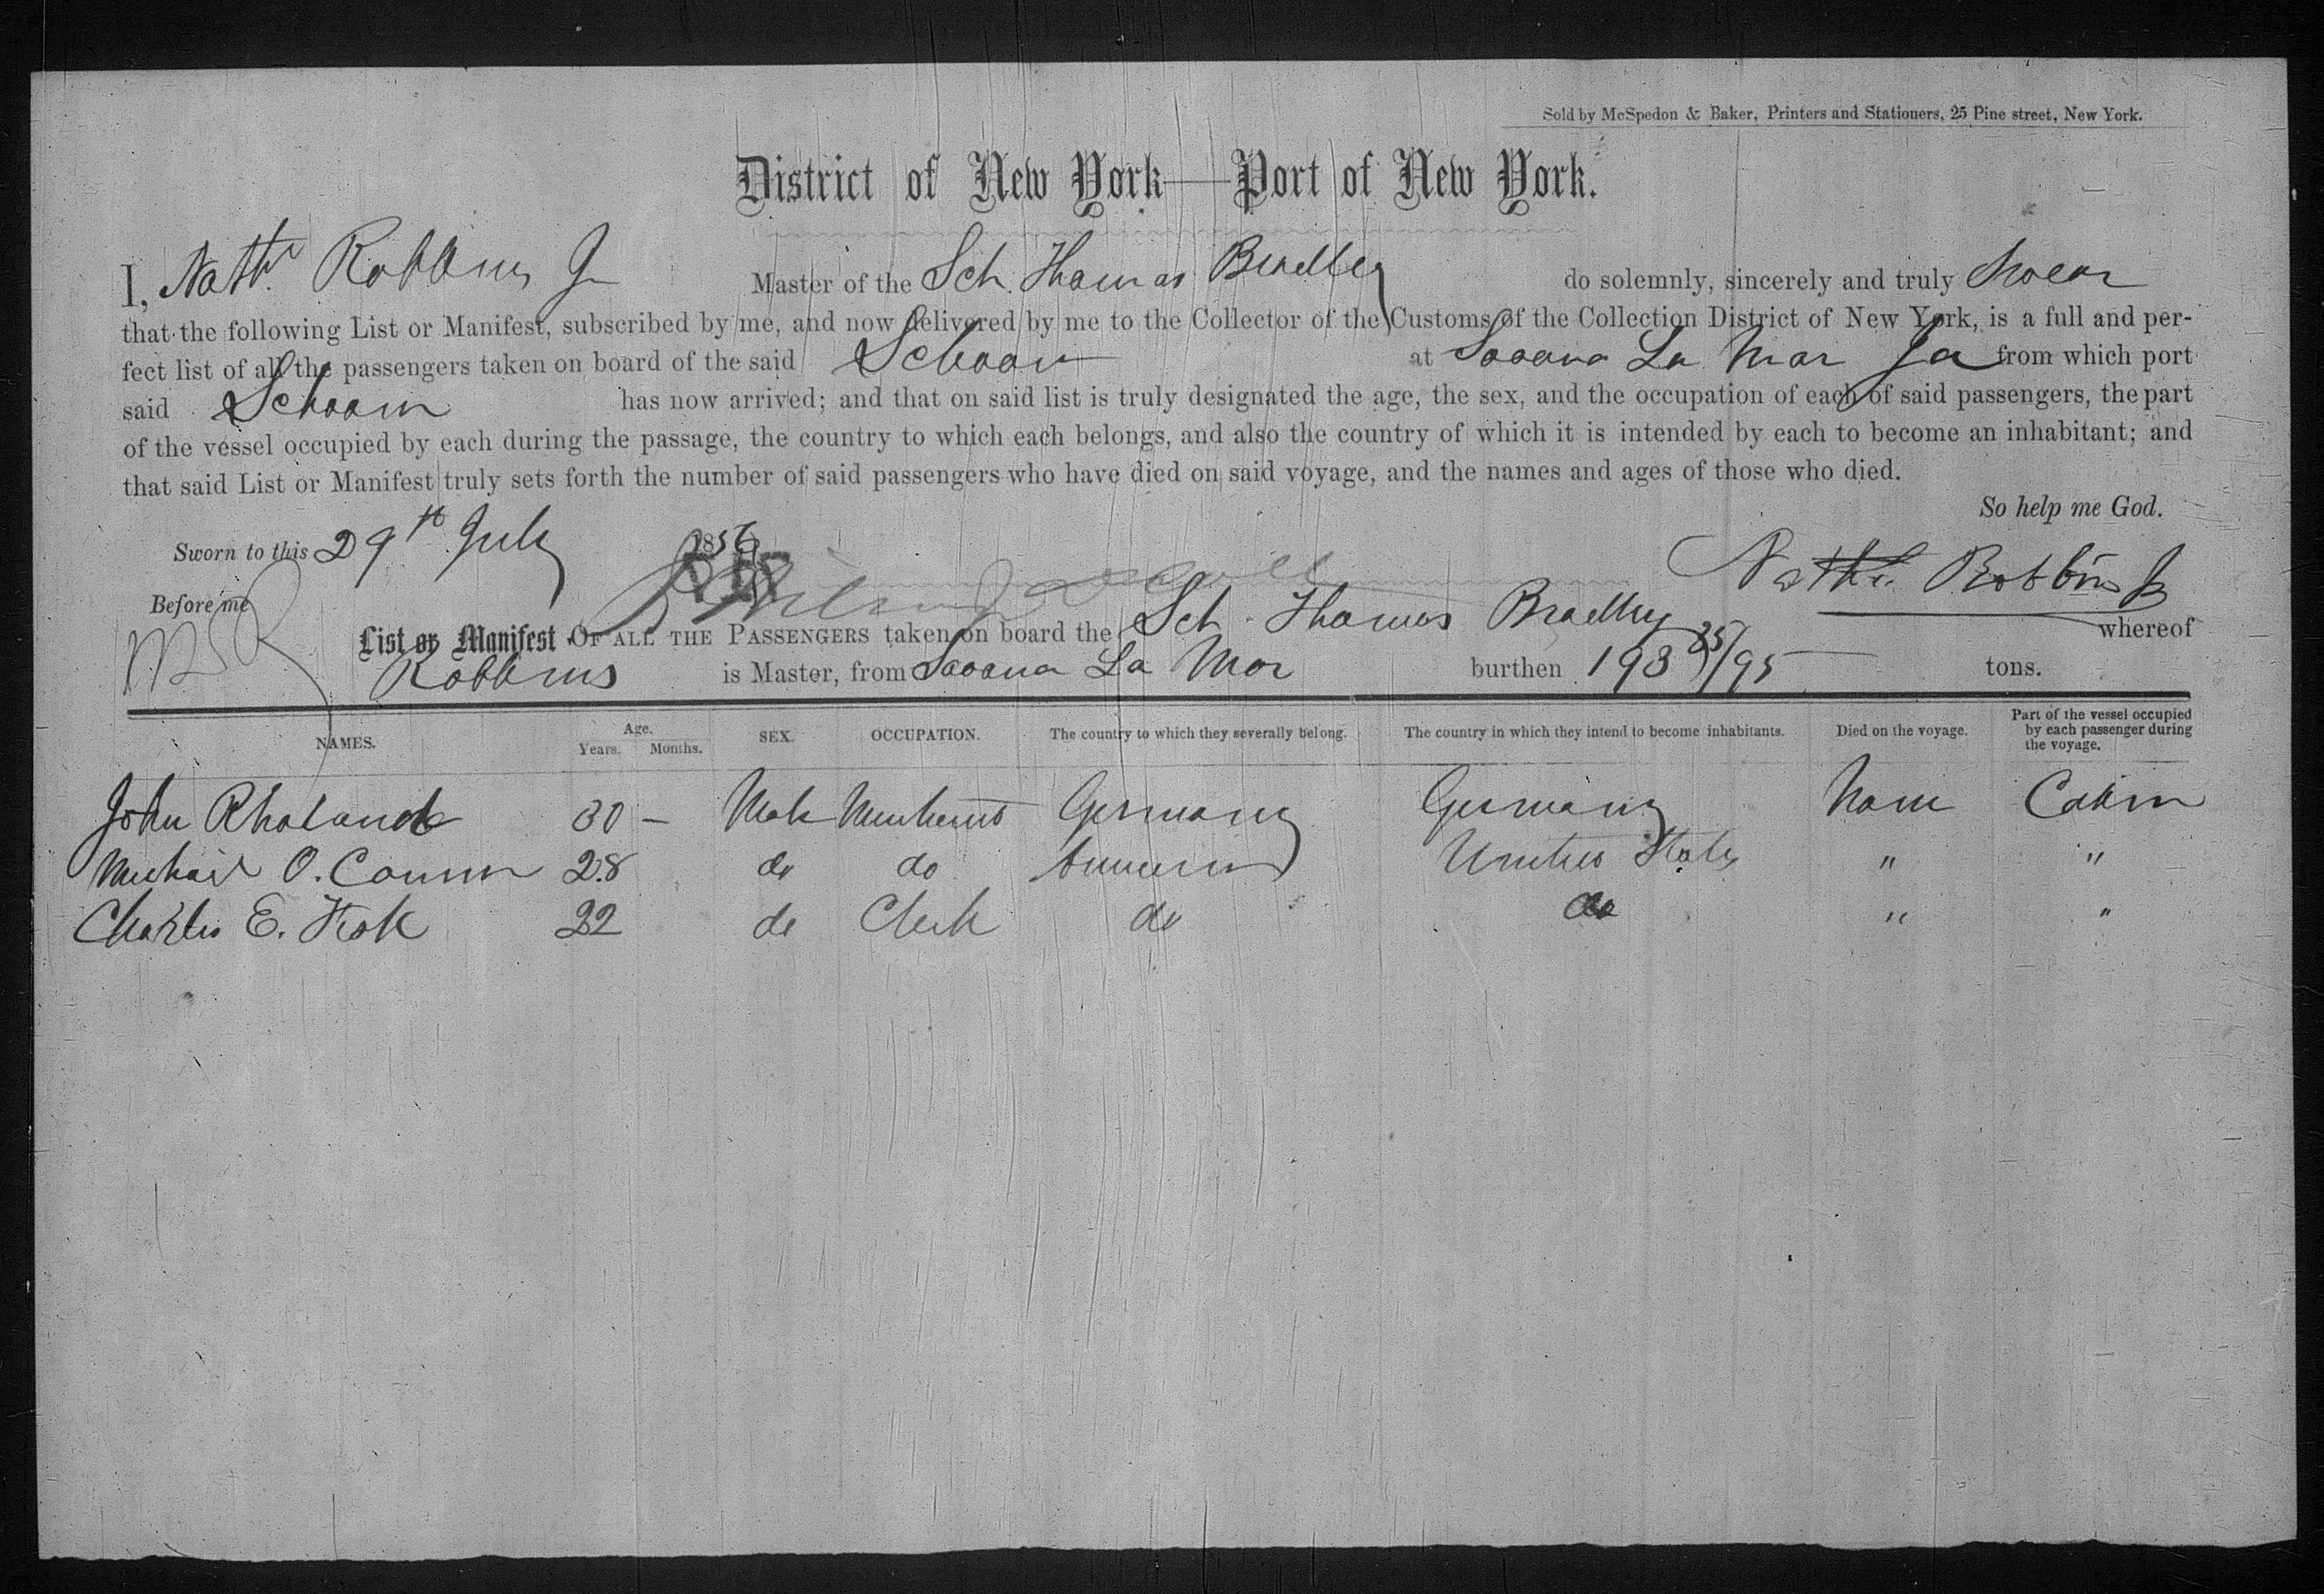 Sold by McSpedon & Baker, Printers and Stationers, 25 Pine street, New York.
District of New York—Port of New York.
I, Nathl. Robbins Jr Master of the Sch. Thomas Bradley do solemnly, sincerely and truly Swear
that the following List or Manifest, subscribed by me, and now delivered by me to the Collector of the Customs of the Collection District of New York, is a full and per-
fect list of all the passengers taken on board of the said Schoor at Savana La Mar Ja from which port
said Schoom has now arrived; and that on said list is truly designated the age, the sex, and the occupation of each of said passengers, the part
of the vessel occupied by each during the passage, the country to which each belongs, and also the country of which it is intended by each to become an inhabitant; and
that said List or Manifest truly sets forth the number of said passengers who have died on said voyage, and the names and ages of those who died.
So help me God.
Sworn to this 29th July 1856
Nathl. Robbins Jr
Before me
List or Manifest OF ALL THE PASSENGERS taken on board the Sch. Thomas Bradley whereof
Robbins is Master, from Savana La Mar burthen 193 85/95 tons.
NAMES. Age. Years. Months. SEX. OCCUPATION. The country to which they severally belong. The country in which they intend to become inhabitants. Died on the voyage. Part of the vessel occupied by each passenger during the voyage.
John 30 — Male Merchant Germany Germany None Cabin
Michael O. Connor 28 do do United States " "
Charles E. Fisk 22 do Clerk do do " "